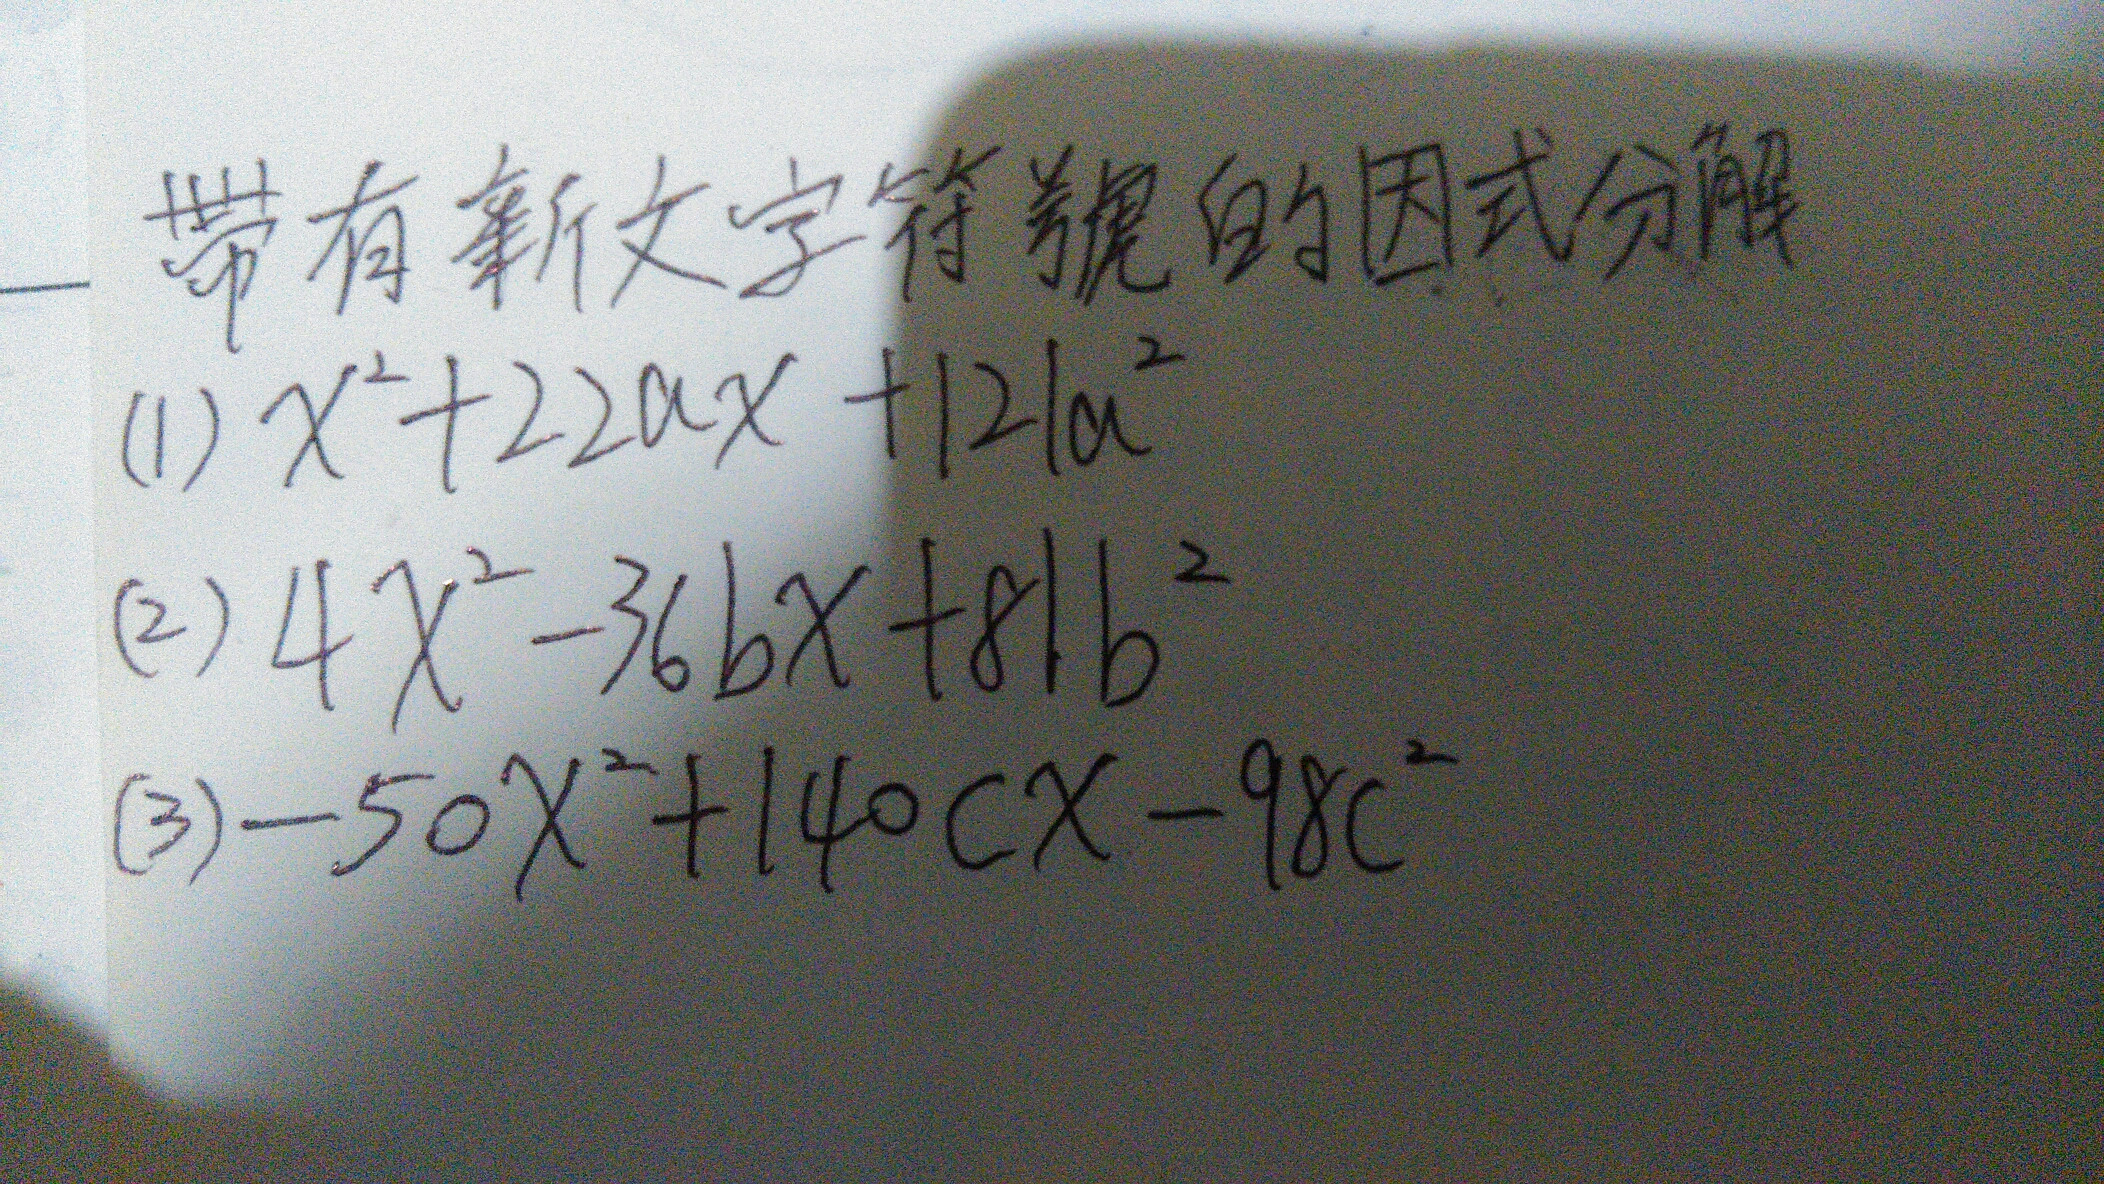 带有新文字符號的因式分解
(1) x²+22ax+121a²
(2) 4x²-36bx+81b²
(3) -50x²+140cx-98c²